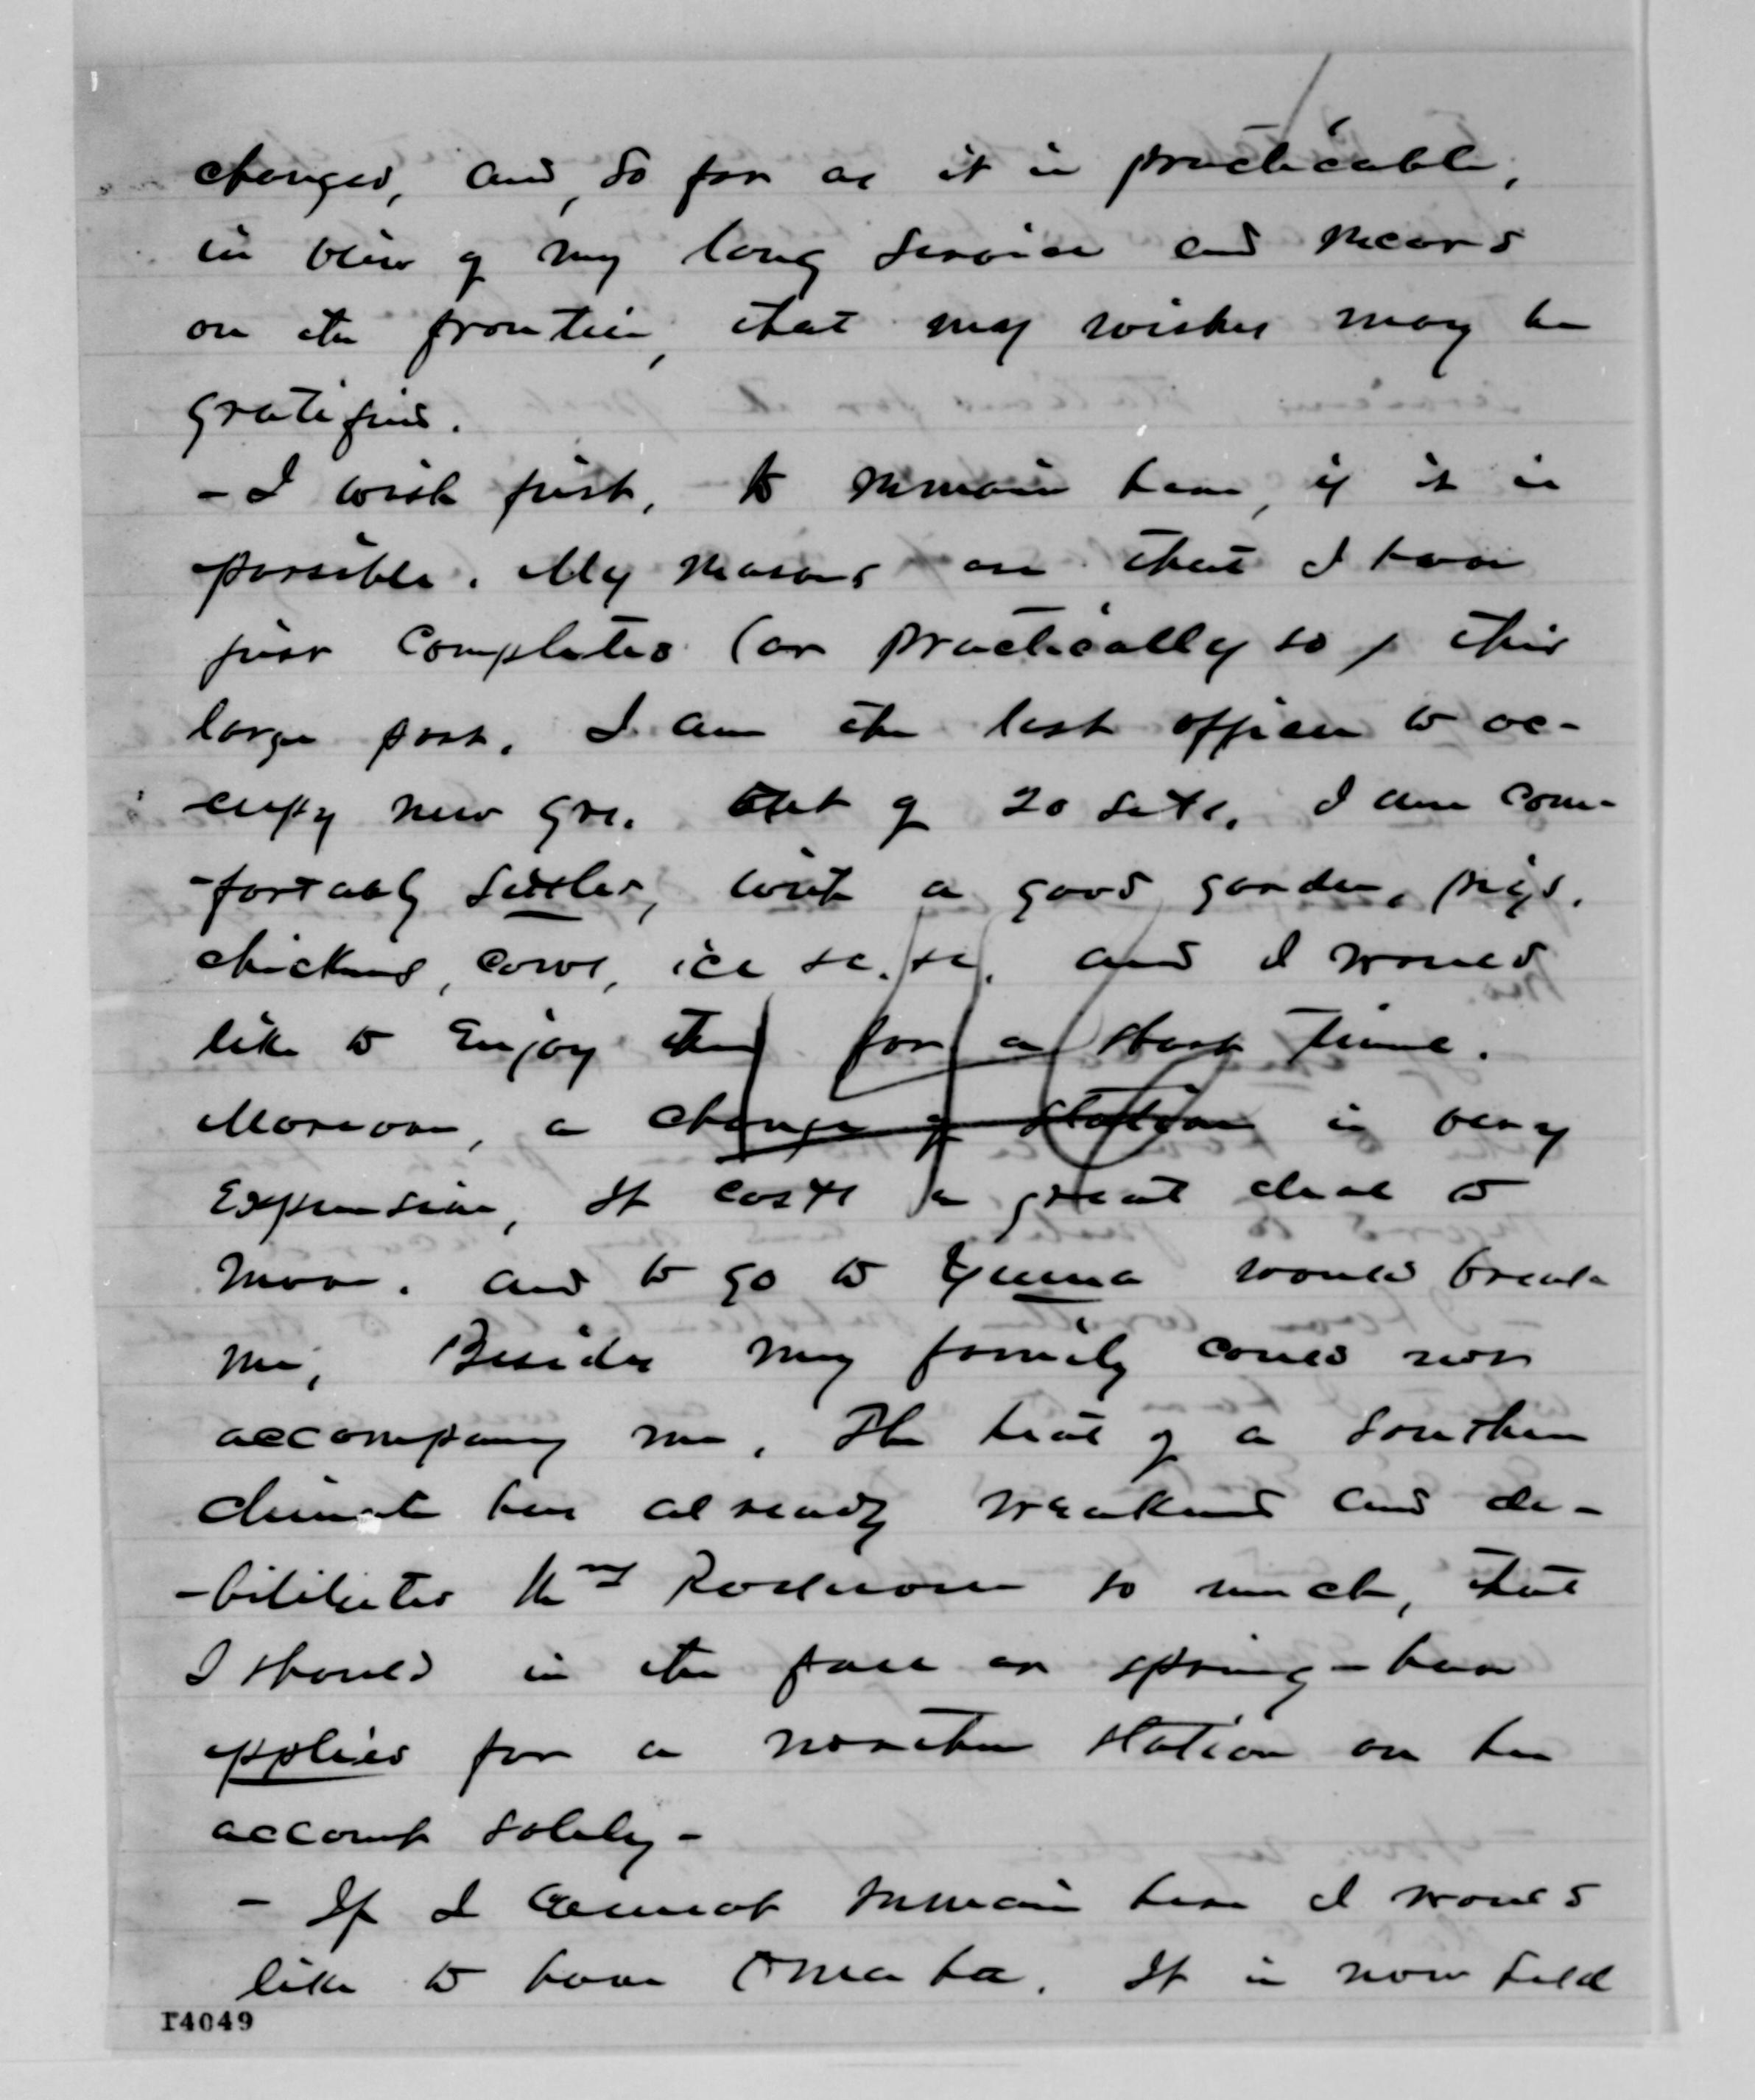 changed, and, so far as it is practicable,
in view of my long service and record
on the frontier, that my wishes may be
gratified.
- I wish first, to remain here, if it is
possible. My reasons are that I have
just completed (or practically so) this
large post. I am the last officer to oc-
cupy new qrs. out of 20 sets. I am com-
-fortably settled, with a good garden, pigs,
chickens, cows, ice &c. &c. and I would
like to enjoy them for a short time.
Moreover, a change of station is very
expensive, It costs a great deal to
move. and to go to Yuma would break
me, Besides my family could not
accompany me. The heat of a southern
climate has already weakened and de-
-bilitated Mrs so much, that
I should in the fall or spring - have
applied for a northern station on her
account solely -
- If I cannot remain here I would
like to have Omaha. It is now held
T4049